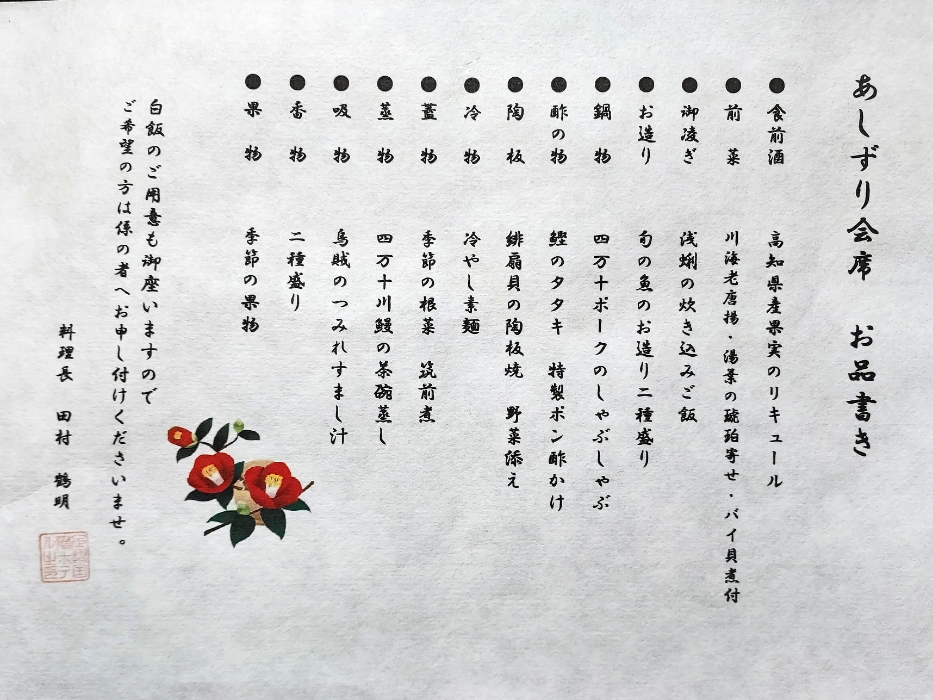 あしずり会席　お品書き
●食前酒　高知県産果実のリキュール
●前菜　川海老唐揚・湯葉の琥珀寄せ・バイ貝煮付
●御凌ぎ　浅蜊の炊き込みご飯
●お造り　旬の魚のお造り二種盛り
●鍋物　四万十ポークのしゃぶしゃぶ
●酢の物　鰹のタタキ　特製ポン酢かけ
●陶板　緋扇貝の陶板焼　野菜添え
●冷物　冷やし素麺
●蓋物　季節の根菜　筑前煮
●蒸物　四万十川鰻の茶碗蒸し
●吸物　烏賊のつみれすまし汁
●香物　二種盛り
●果物　季節の果物
白飯のご用意も御座いますので
ご希望の方は係の者へお申し付けくださいませ。
料理長　田村　鶴明